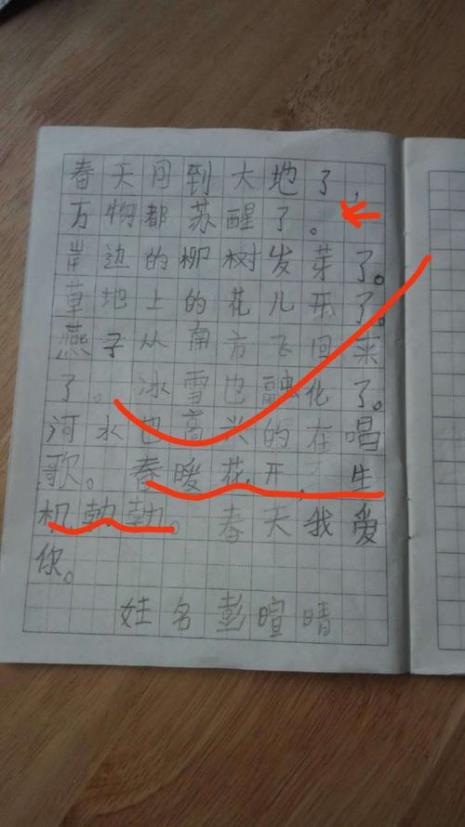 春天回到大地了，
万物都苏醒了。
岸边的柳树发芽了。
草地上的花儿开了。
燕子从南方飞回来
了。冰雪也融化了。
河水也高兴的在唱
歌。春暖花开，生
机勃勃。春天我爱
你。
姓名彭暄晴